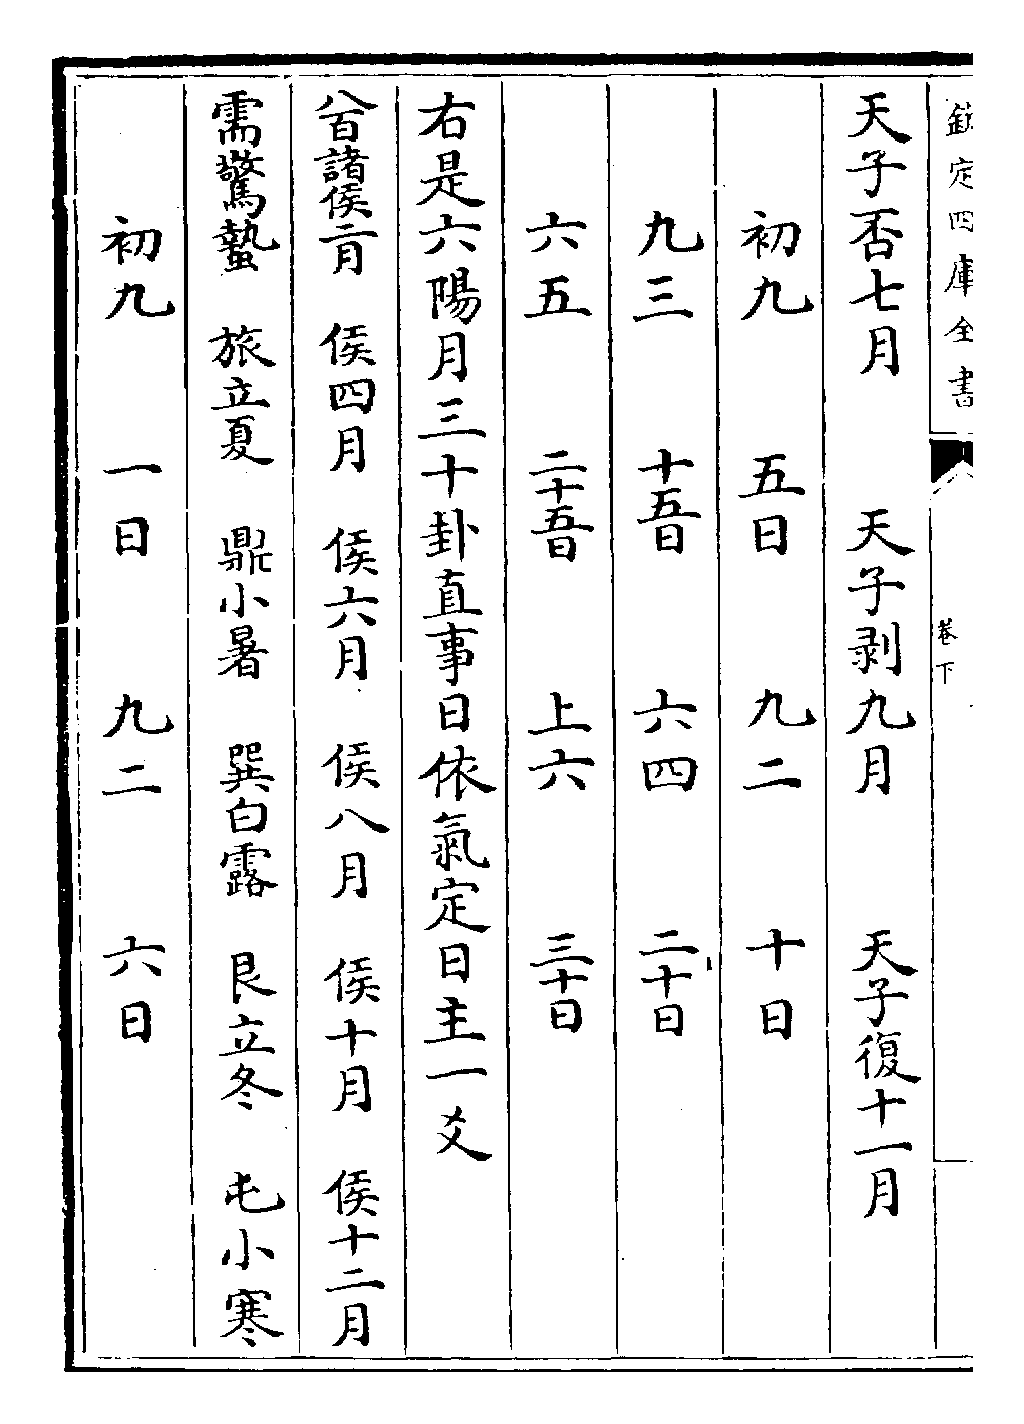 欽定四庫全書
卷下
天子否七月　天子剥九月　天子復十一月
初九　五日　九二　十日
九三　十五日　六四　二十日
六五　二十五日　上六　三十日
右是六陽月三十卦直事日依氣定日主一爻
八百諸侯二月　侯四月　侯六月　侯八月　侯十月　侯十二月
需驚蟄　旅立夏　鼎小暑　巽白露　艮立冬　屯小寒
初九　一日　九二　六日